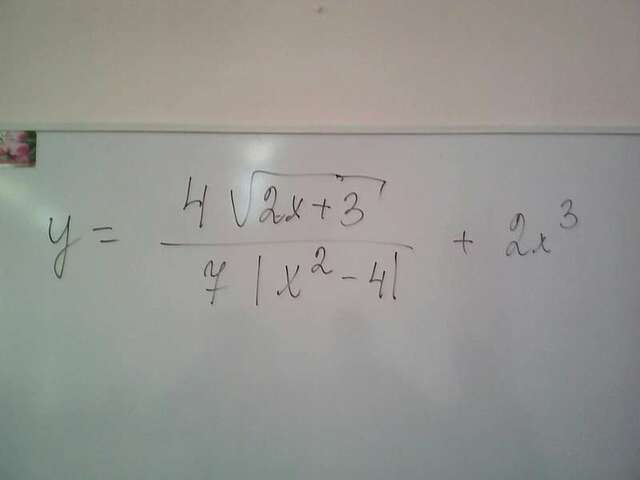 y = \frac{4\sqrt{2x+3}}{7|x^2-4|} + 2x^3